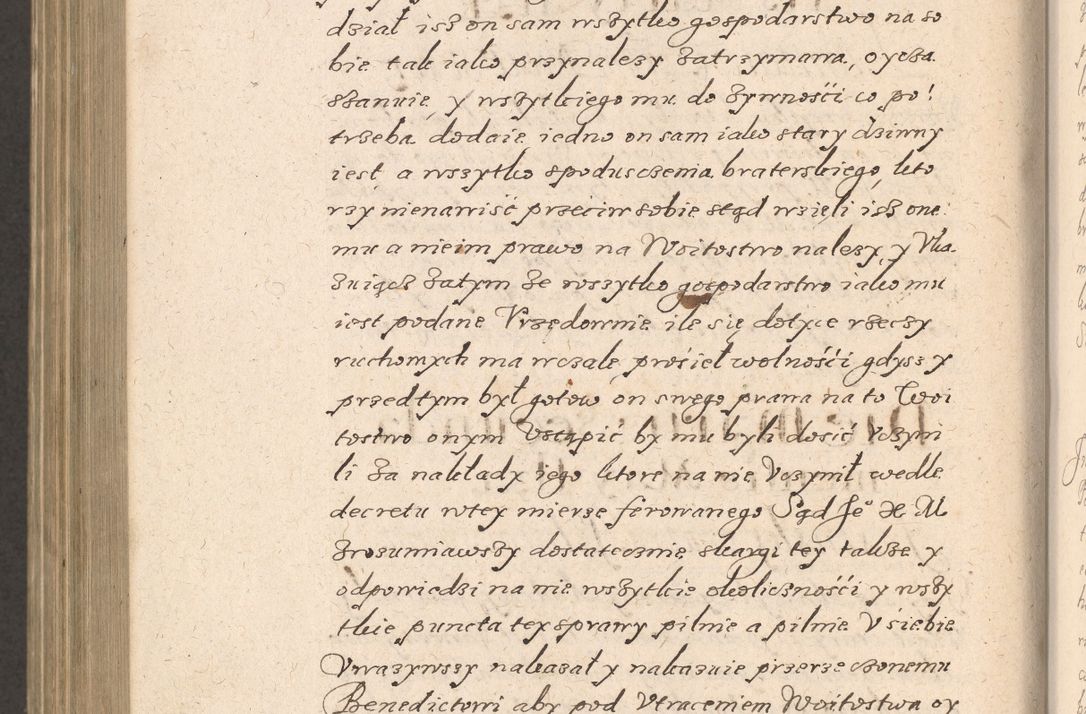 dział isz on sam wszytko gospodarstwo na so
bie tak iako przynalezy zatrzymawa, oycza
szanuie, y wszytkiego mu do zywnośći co po!
trzeba dodaie, iedno on sam iako stary dziwny
iest, a wszytko spodusczenia braterskiego, kto
rzy nienawiść przeciw sobie stąd wzięli isz one
mu a nie im prawo na Woitostwo nalezy, y Vka
zuiącz zatym ze wszytko gospodarstwo iako mu
iest podane Vrzędownie ile się dotyce rzeczy
ruchomych ma wczale, prosieł wolnośći gdysz y
przedtym był gotow on swego prawa na to Woi
tostwo onym Vstąpić by mu byli dosić Vczyni
li za nakłady iego ktore na nie Vczynił wedle
decretu wtey mierze ferowanego Sąd Je° X M
Zrozumiawszy dostatecznie skargi tey takze y
odpowiedzi na nie wszytkie okolicznośći y wszy
tkie puncta tey sprawy pilnie a pilnie V siebie
Vwazywszy nakazał y nakazuie przerzeczonemu
Benedictowi aby pod Vtraceniem Woitostwa oy